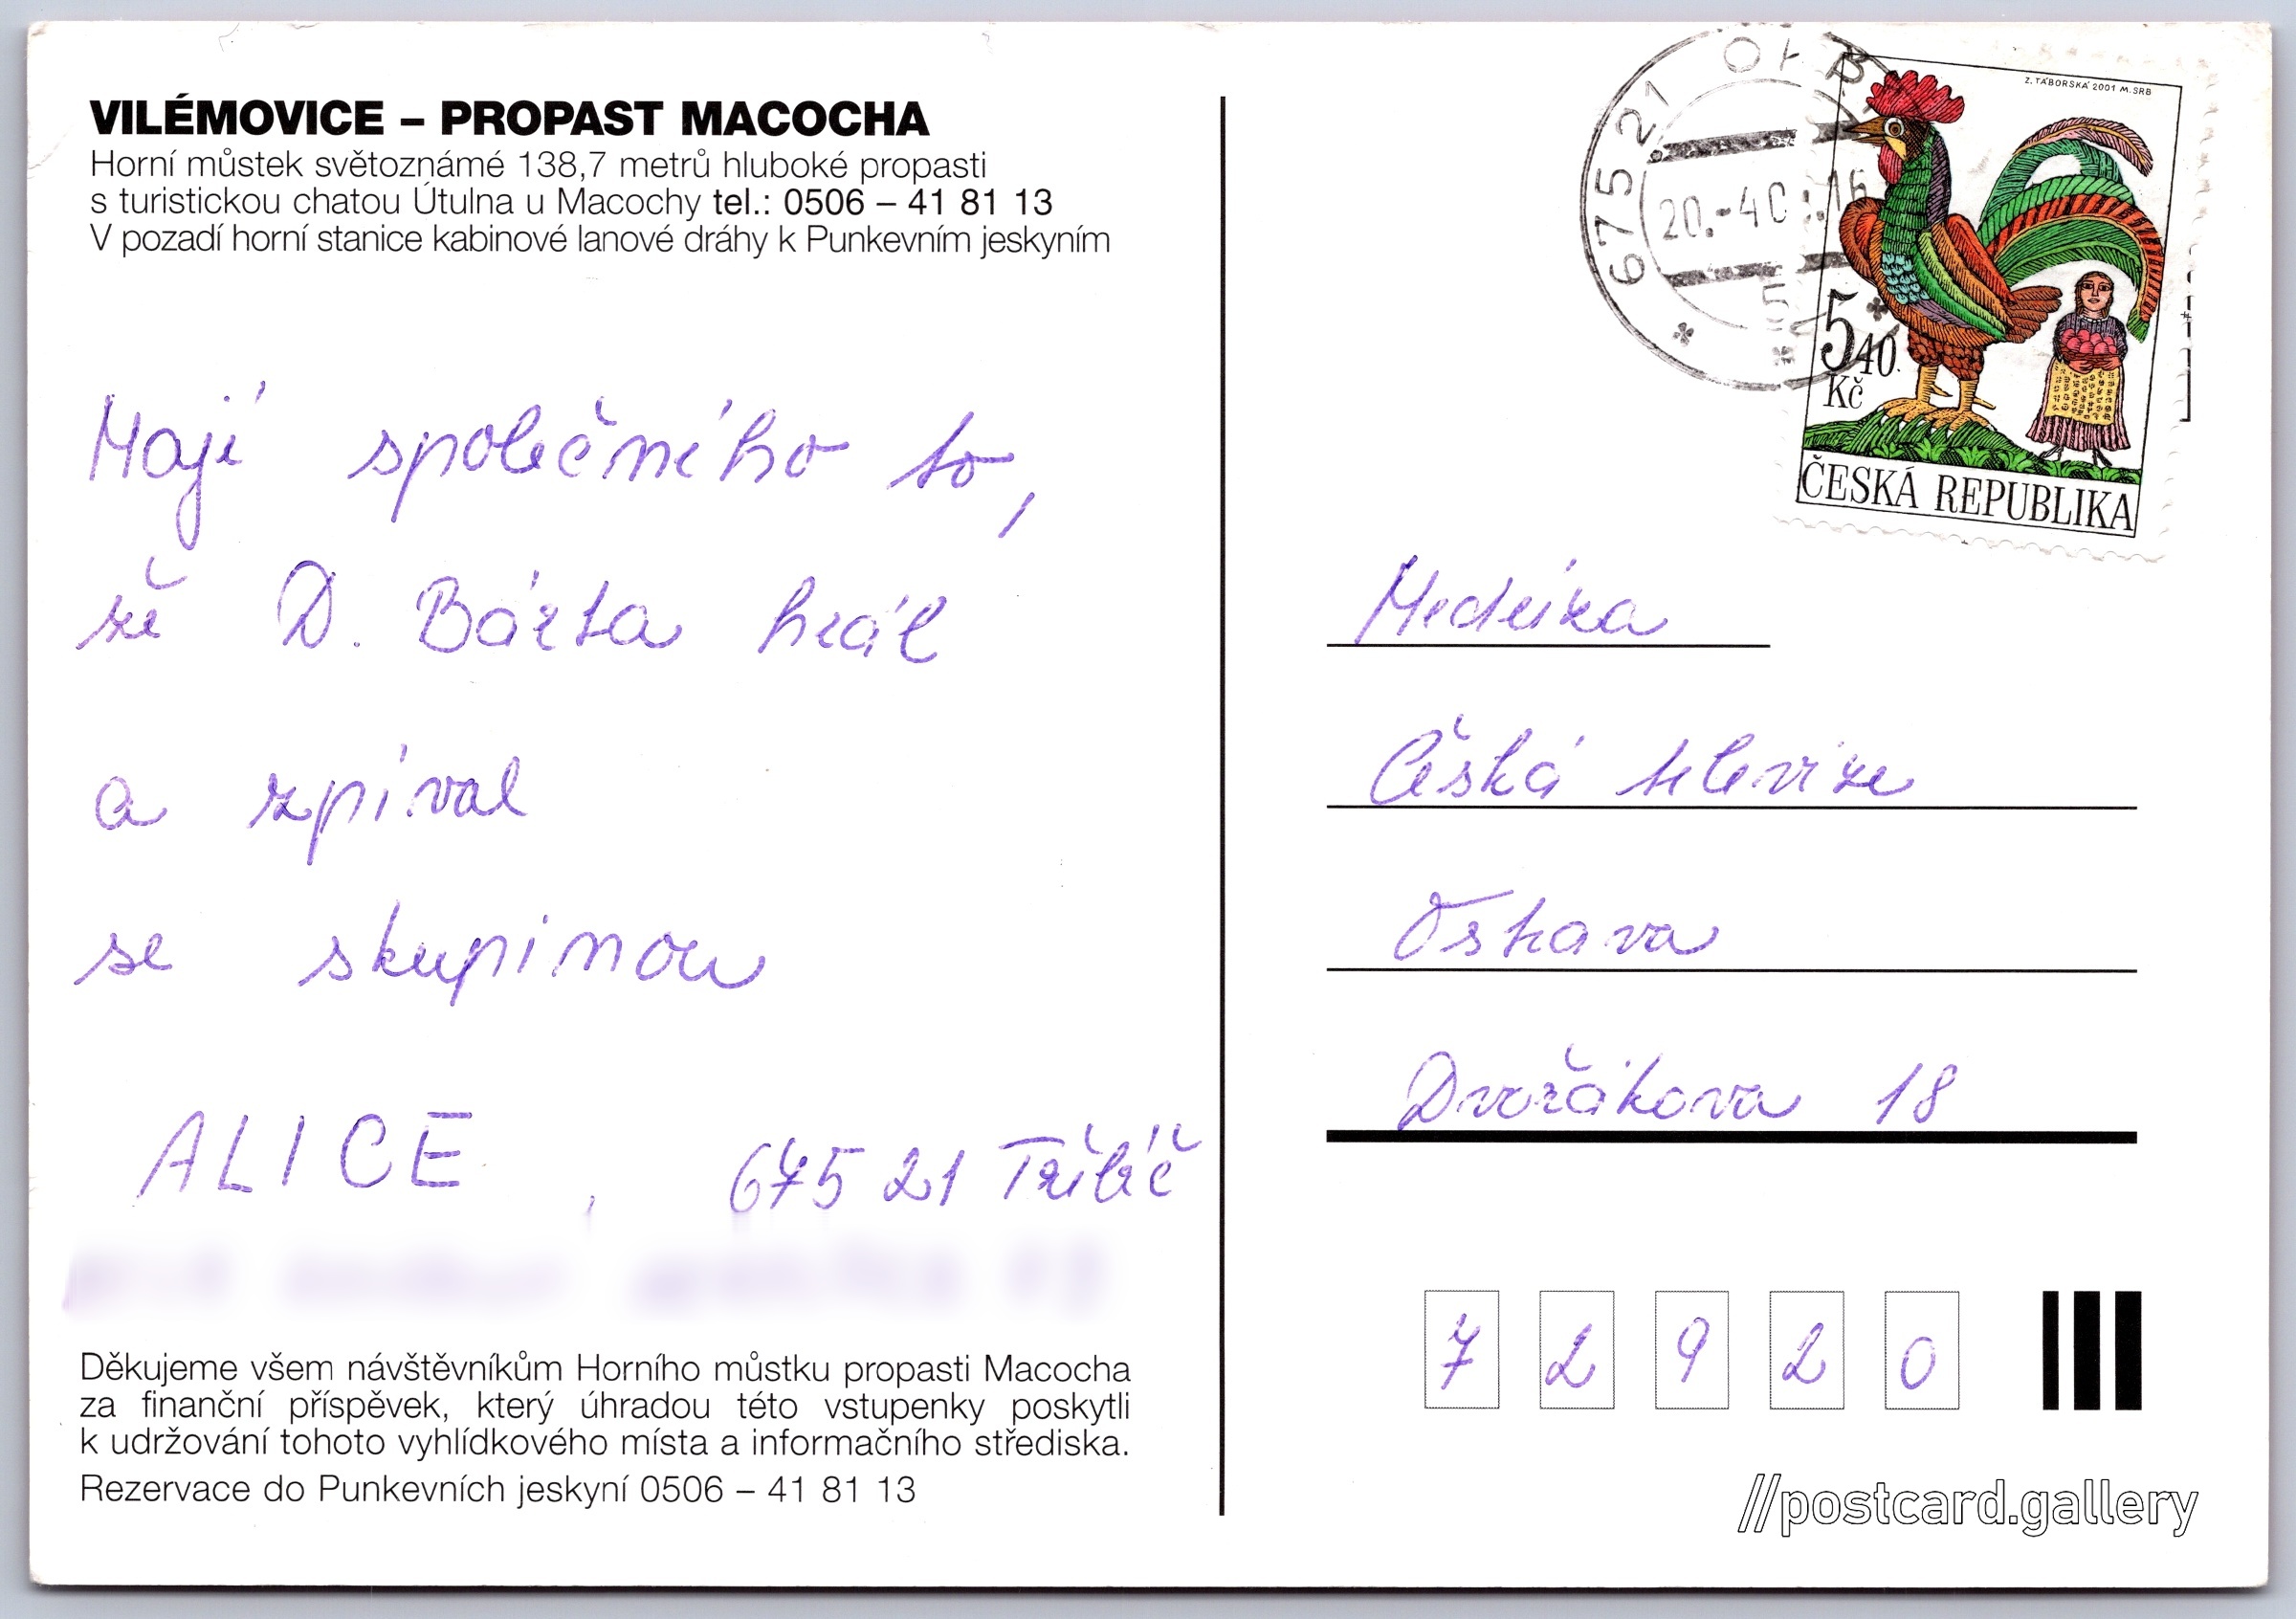 VILÉMOVICE – PROPAST MACOCHA
Horní můstek světoznámé 138,7 metrů hluboké propasti
s turistickou chatou Útulna u Macochy tel.: 0506 – 41 81 13
V pozadí horní stanice kabinové lanové dráhy k Punkevním jeskyním
Mají společného to,
že D. Bárta hrál
a zpíval
se skupinou
ALICE, 675 21 Třebíč
Děkujeme všem návštěvníkům Horního můstku propasti Macocha
za finanční příspěvek, který úhradou této vstupenky poskytli
k udržování tohoto vyhlídkového místa a informačního střediska.
Rezervace do Punkevních jeskyní 0506 – 41 81 13
675 21
20.-4
16
Z. TÁBORSKÁ 2001 M. SRB
5,40
Kč
ČESKÁ REPUBLIKA
Česká televize
Ostrava
Dvořákova 18
7 2 9 2 0
//postcard.gallery